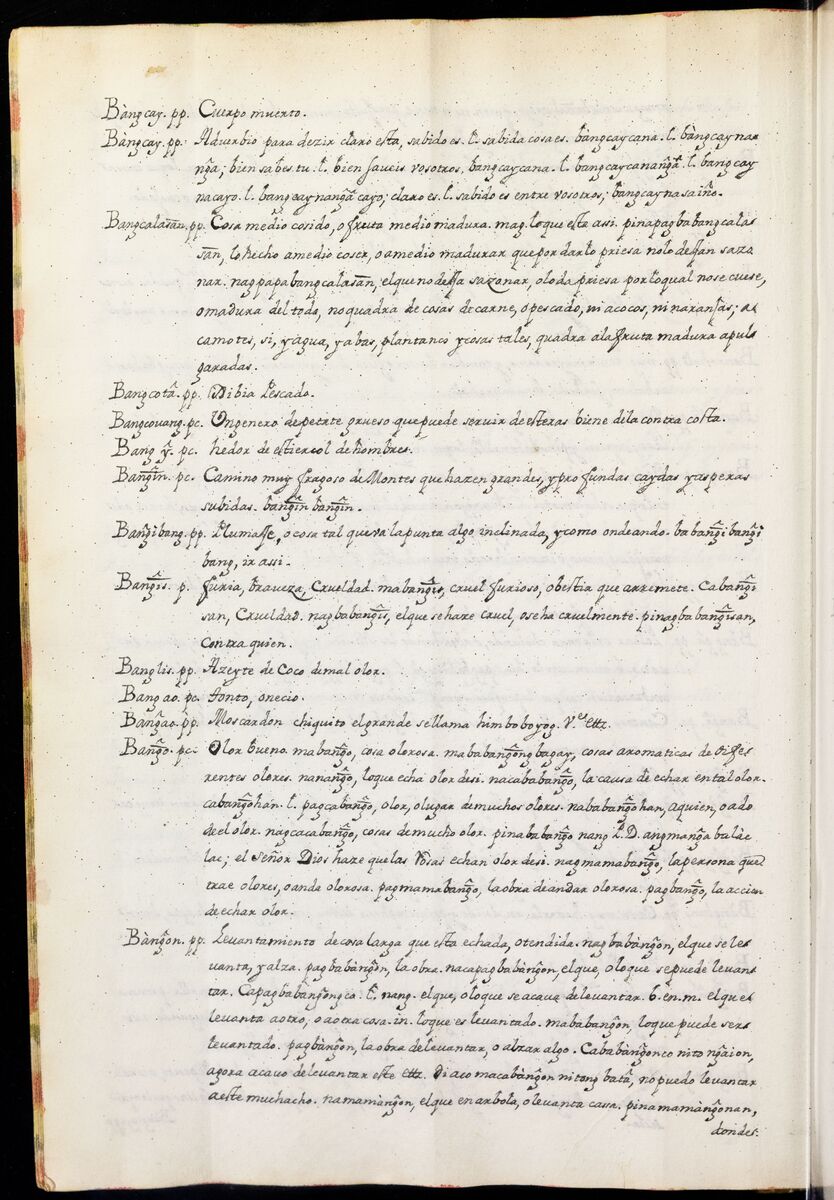 Bàngcay. pp. Cuerpo muerto.
Bàngcay. pp. Adverbio para dezir claro esta, sabido es. l. sabida cosa es. bàngcaycana. l. bàngcaynan
nga; bien sabes. tu. l. bien saveis vosotros, bangcaycana. l. bangcaycananga. l. bangcay
nacayo. l. bangcaynanga cayo; claro es. l. sabido es entre vosotros; bangcaynasaiño.
Bangcalasan. pp. Cosa medio cosido, o fruta medio madura. mag. loque esta assi. pinapagbabangcalas
san, lo hecho amedio coser, o amedio madurar que por darle priesa nolo dejan sazo
nar. nagpapabangcalasan, elque no deja sazonar, oloda priesa por loqual nose cuese,
omadura del todo, no quadra de cosas de carne, o pescado, ni acocos, ni naranjas; a
camotes, si, y agua, yabas, plantanos y cosas tales, quadra ala fruta madura apulg
garadas.
Bangcota. pp. Xibia Pescado.
Bangcouang. pc. Un genero de petate grueso que puede servir de esteras biene de la contra costa.
Bang y. pc. hedor de estiercol de hombres.
Bangin. pc. Camino muy fragoso de Montes que hazen grandes, y profundas caydas y asperas
subidas. bangin bangin.
Bangibang. pp. Plumaje, o cosa tal que va la punta algo inclinada, y como ondeando. babangibangi
bang, ir assi.
Bangis. p. furia, braveza, Crueldad. mabangis, cruel furioso, o bestia que arremete. Cabangi
san, Crueldad. nagbabangis, el que se haze cruel, ose ha cruelmente. pinagbabangisan,
contra quien.
Banglis. pp. Azeyte de Coco de mal olor.
Bangao. pc. tonto, o necio.
Bangao. pp. Moscardon chiquito el grande se llama himboboyog.
Bango. pc. Olor bueno. mabango, cosa olorosa. mababangong bagay, cosas aromaticas de dife
rentes olores. nanango, loque echa olor desi. nacababango, la causa de echar en tal olor.
cabangohan. l. pagcabango, olor, olugar de muchos olores. nababangohan, aquien, o ado
de el olor. nagcacabango, cosas de mucho olor. pinababango nang P. D. angmanga bulàc
lac; el Señor Dios haze quelas Rosas echan olor desi. nagmamabango, la persona que
trae olores, o anda olorosa. pagmamabango, la obra de andar olorosa. pagbango, la accion
de echar olor.
Bàngon. pp. Levantamiento de cosa larga que esta echada, otendida. nagbabàngon, el que se le
vanta, y alza. pagbabàngon, la obra. nacapagbabàngon, elque, oloque sepuede levan
tar. Capagbabangongco. l. nang. elque, oloque se acava de levantar. 6. en. m. el que
levanta aotro, o aotra cosa. in. loque es levantado. mababangon, loque puede ser
levantado. pagbàngon, la obra de levantar, o alzar algo. Cababàngonco nito ngaion,
agora acavo de levantar este ettz. Di aco macabàngon nitong bata, no puedo levantar
aeste muchacho. namamàngon, elque enarbola, o levanta casa. pinamamàngonan,
dondes.